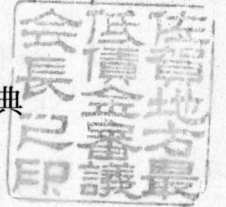 佐賀地方最
低賃金審議
会長之印
典